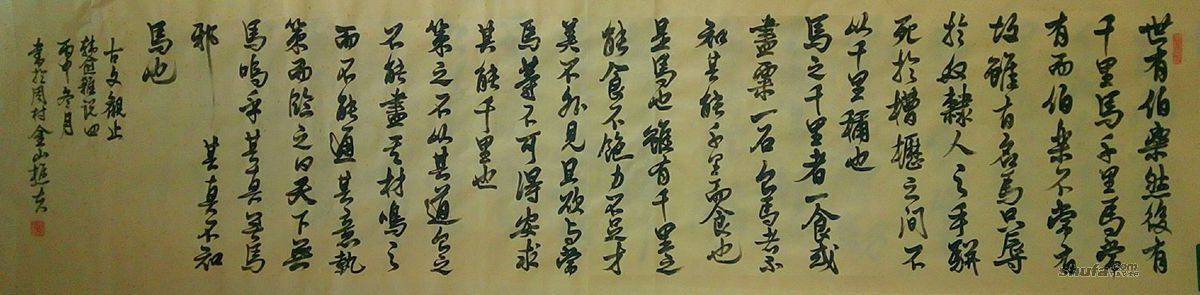 世有伯樂然後有
千里馬千里馬常
有而伯樂不常有
故雖有名馬只辱
於奴隸人之手駢
死於槽櫪之間不
以千里稱也
馬之千里者一食或
盡粟一石食馬者不
知其能千里而食也
是馬也雖有千里之
能食不飽力不足才
美不外見且欲与常
馬等不可得安求
其能千里也
策之不以其道食之
不能盡其材鳴之
而不能通其意執
策而臨之曰天下無
馬鳴乎其真無馬
邪 其真不知
馬也
古文觀止
韓愈雜說四
丙申冬月
書於周村金山
shufa.com